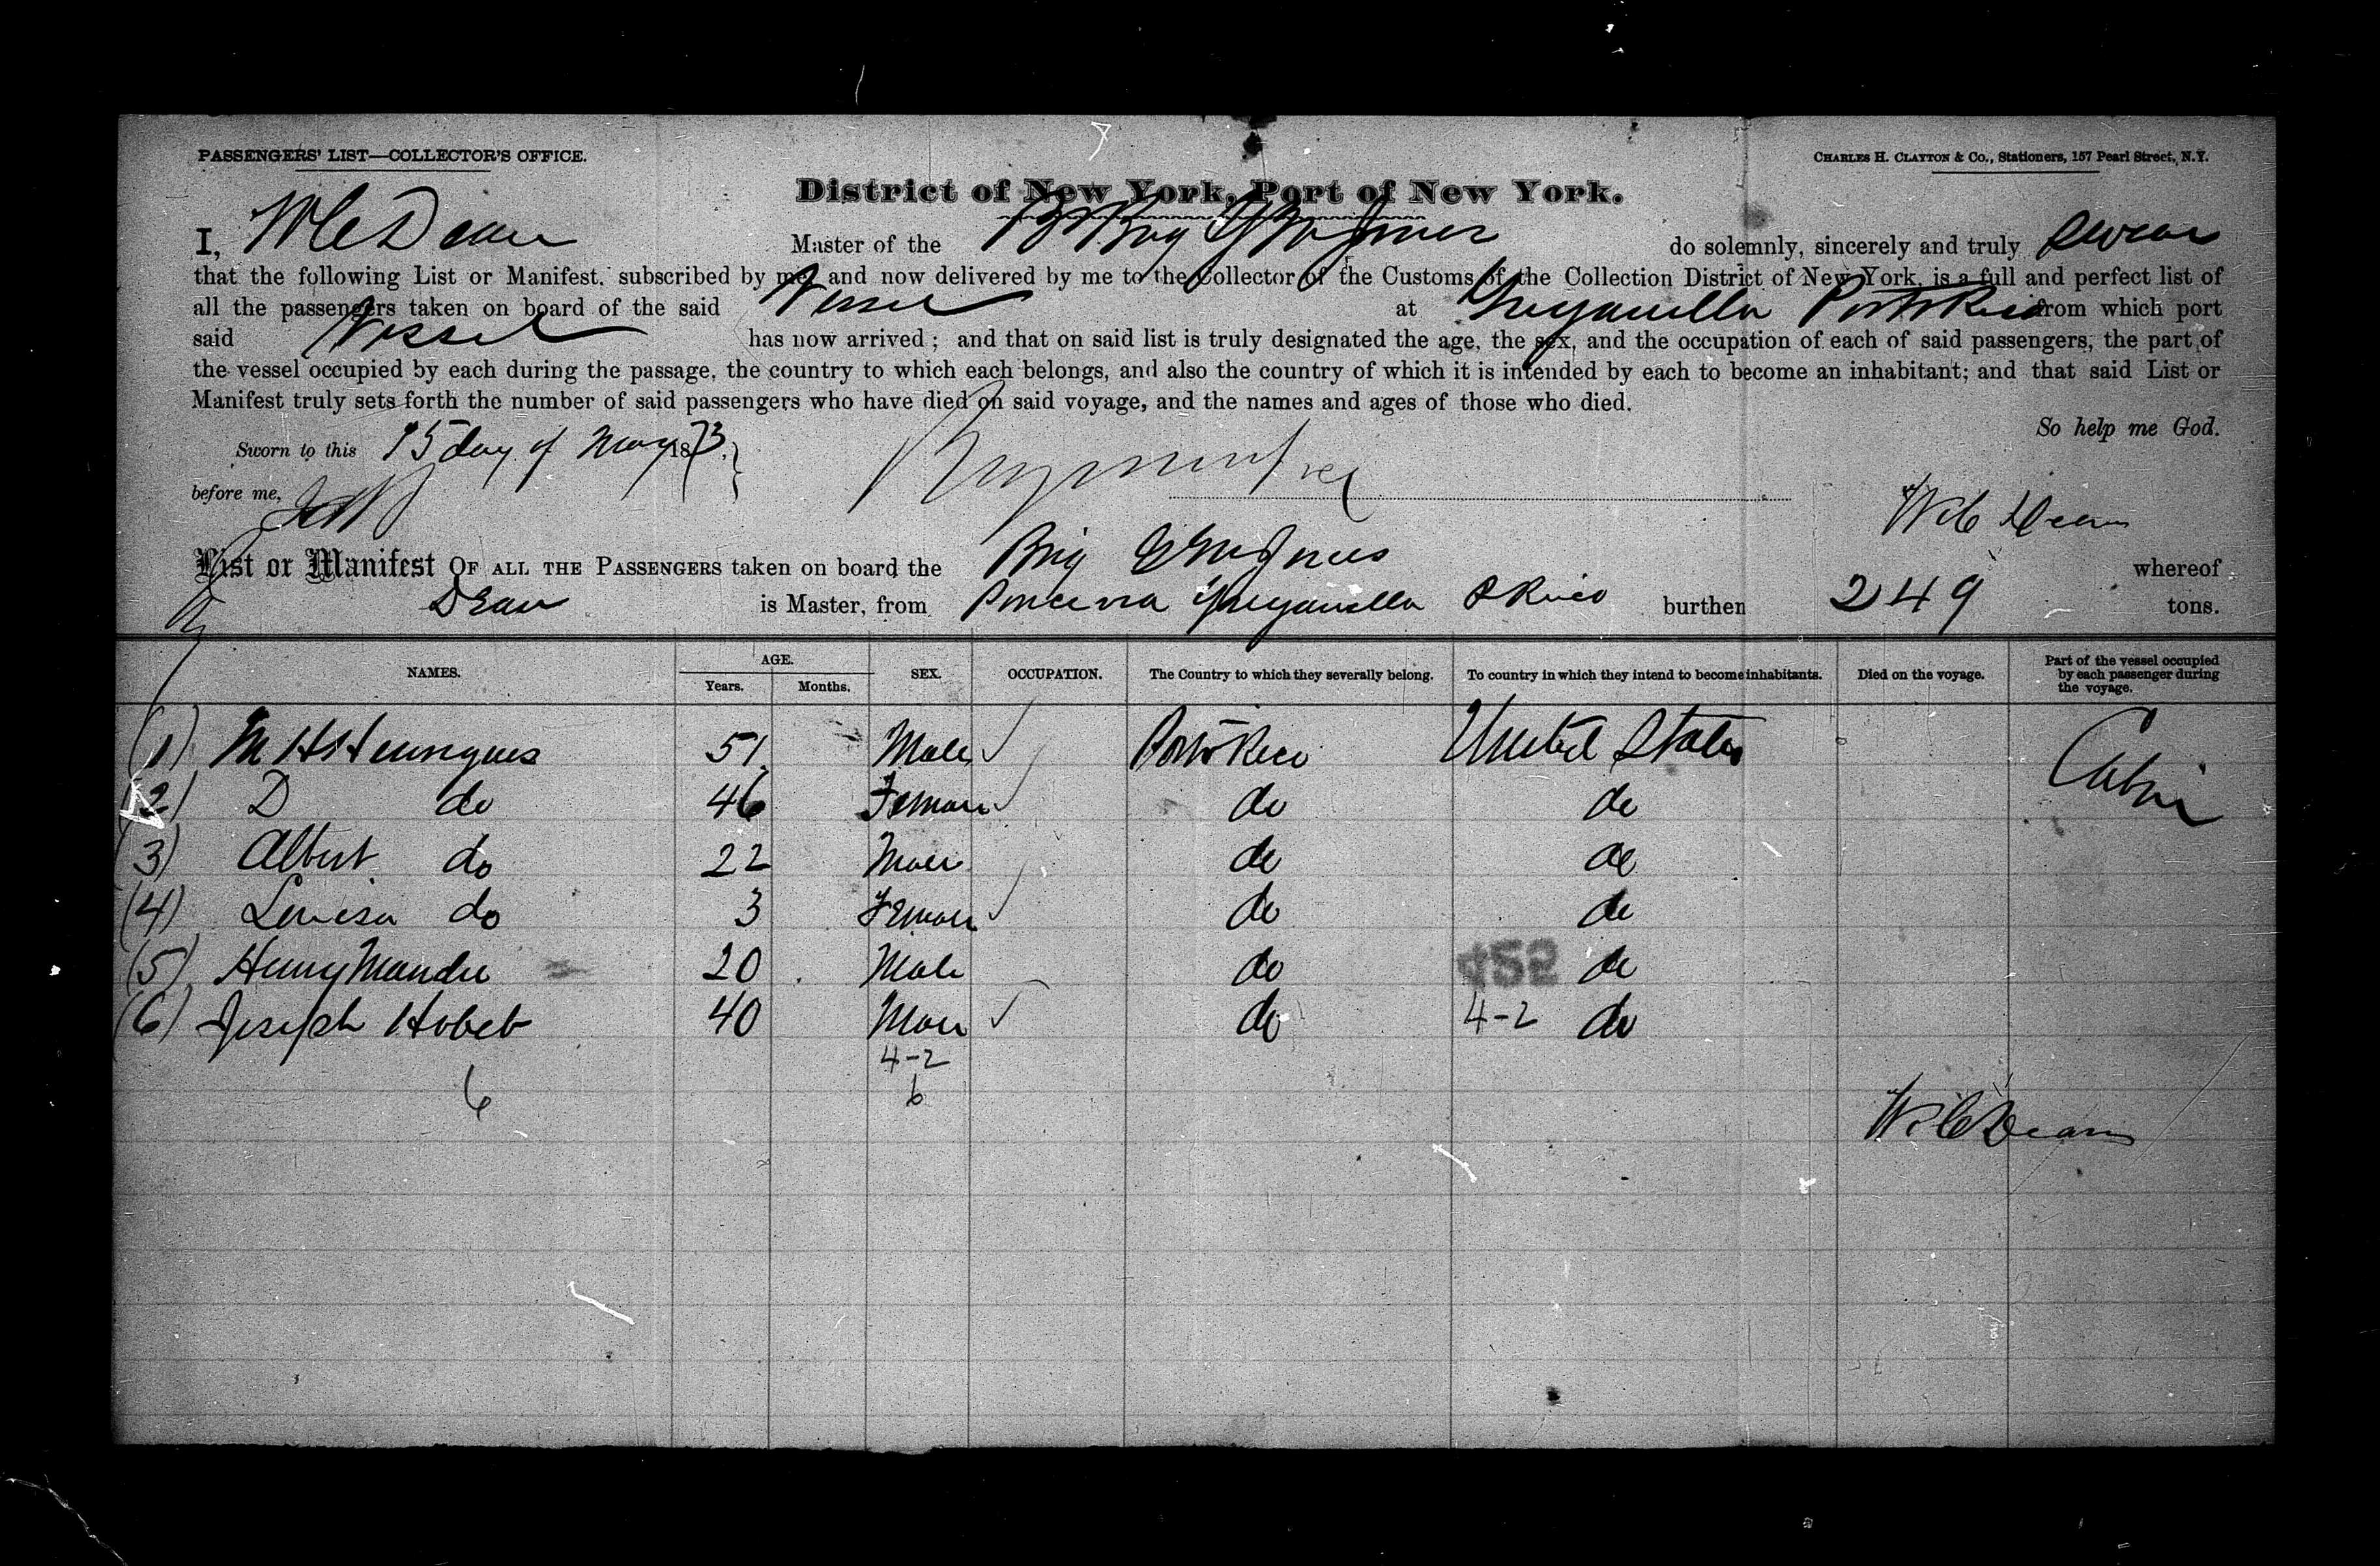 PASSENGERS' LIST—COLLECTOR'S OFFICE.
CHARLES H. CLAYTON & Co., Stationers, 157 Pearl Street, N.Y.
District of New York, Port of New York.
I, W C Dean Master of the Brig do solemnly, sincerely and truly swear
that the following List or Manifest, subscribed by me, and now delivered by me to the Collector of the Customs of the Collection District of New York, is a full and perfect list of
all the passengers taken on board of the said Vessel at Guyanilla Porto Rico from which port
said Vessel has now arrived; and that on said list is truly designated the age, the sex, and the occupation of each of said passengers, the part of
the vessel occupied by each during the passage, the country to which each belongs, and also the country of which it is intended by each to become an inhabitant; and that said List or
Manifest truly sets forth the number of said passengers who have died on said voyage, and the names and ages of those who died.
So help me God.
Sworn to this 15 day of May 1873.
before me,
W C Dean
List or Manifest OF ALL THE PASSENGERS taken on board the Brig whereof
Dean is Master, from Ponce via Guyanilla P Rico burthen 249 tons.
NAMES. AGE. Years. Months. SEX. OCCUPATION. The Country to which they severally belong. To country in which they intend to become inhabitants. Died on the voyage. Part of the vessel occupied by each passenger during the voyage.
(1) M H Henriques 51 Male Porto Rico United States Cabin
(2) D do 46 Female do do
(3) Albert do 22 Male do do
(4) Louisa do 3 Female do do
(5) Henry 20 Male do 452 do
(6) Joseph 40 Male do 4-2 do
4-2
6 6
W C Dean